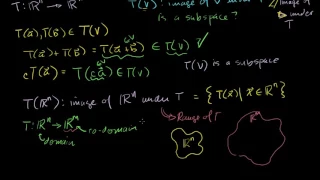 T: ℝⁿ → ℝᵐ
image of V under T
is a subspace?
image under T
T(a⃗), T(b⃗) ∈ T(V)
T(a⃗) + T(b⃗) = T(a⃗+b⃗) ∈ T(V) ✓
cT(a⃗) = T(ca⃗) ∈ T(V)
T(V) is a subspace
T(ℝⁿ): image of ℝⁿ under T = {T(x⃗) | x⃗ ∈ ℝⁿ}
T: ℝⁿ → ℝᵐ
Range of T
domain
co-domain
ℝⁿ
ℝᵐ